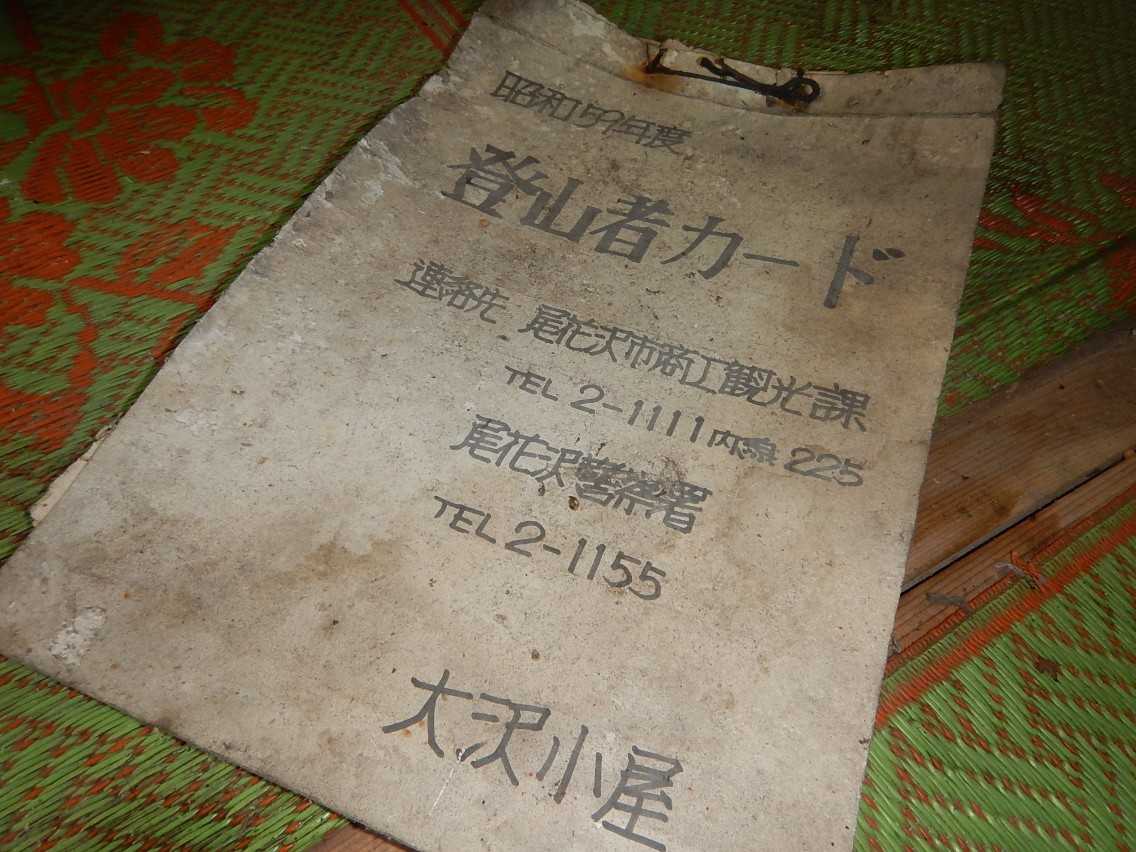 昭和59年度
登山者カード
連絡先 尾花沢市商工観光課
TEL 2-1111内線 225
尾花沢警察署
TEL 2-1155
大沢小屋